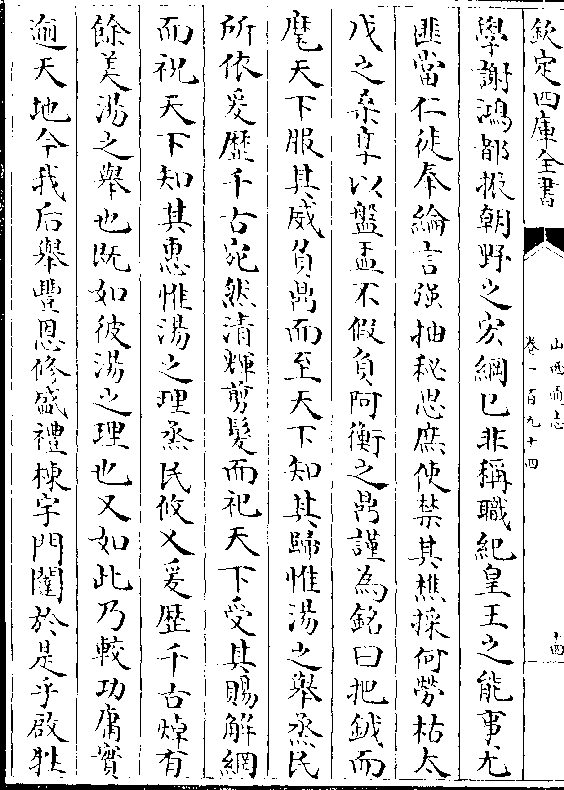 欽定四庫全書
山西通志
卷一百九十四
十四
學謝鴻都掞朝野之宏綱已非稱職紀皇王之能事尤
匪當仁徒奉綸言强抽秘思庶使禁其樵採何勞枯太
戊之桑享以盤盂不假負阿衡之鼎謹為銘曰把鉞而
麾天下服其威負鼎而至天下知其歸惟湯之舉烝民
所依爰歷千古宛然清輝剪髮而祀天下受其賜解網
而祝天下知其惠惟湯之理烝民攸乂爰歴千古焯有
餘美湯之舉也既如彼湯之理也又如此乃較功庸實
逾天地今我后舉豐恩修盛禮棟宇門闈於是乎啟牲